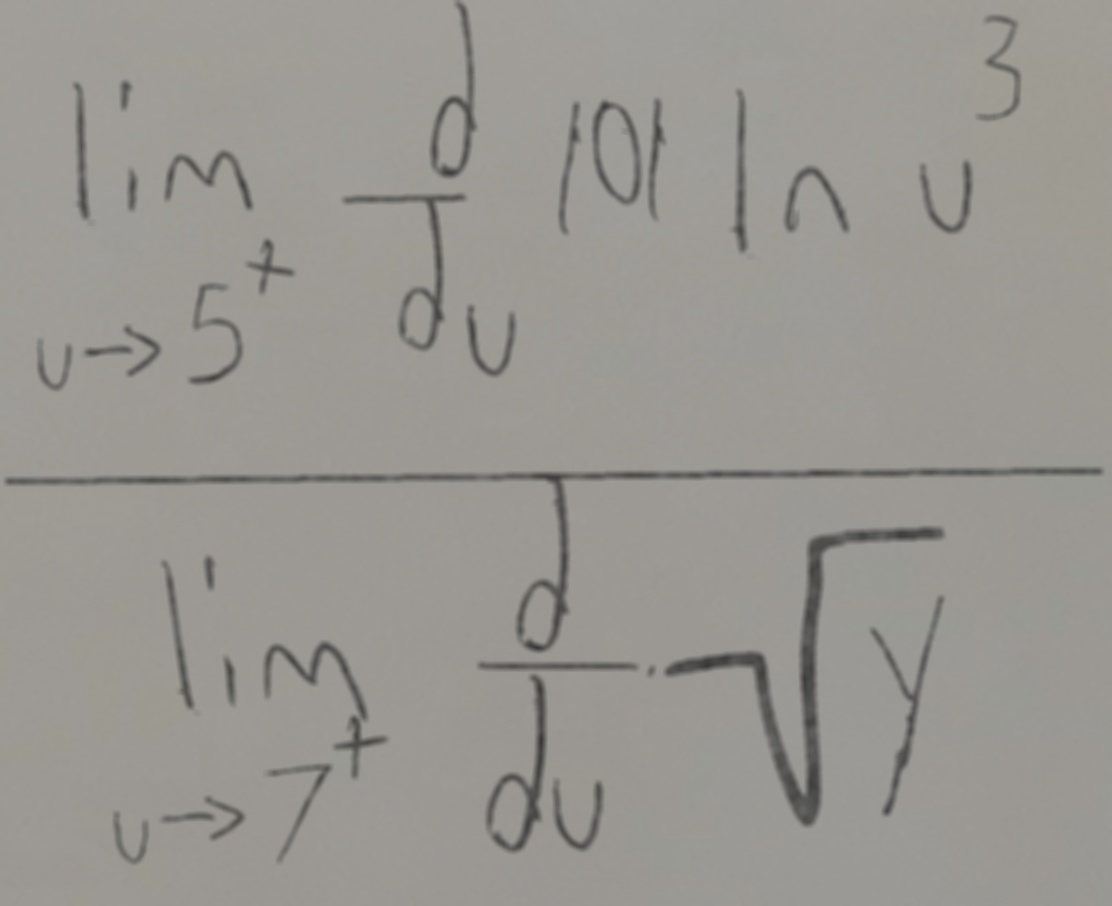 \frac{\lim_{u \to 5^+} \frac{d}{du} 101 \ln u^3}{\lim_{u \to 7^+} \frac{d}{du} \sqrt{y}}